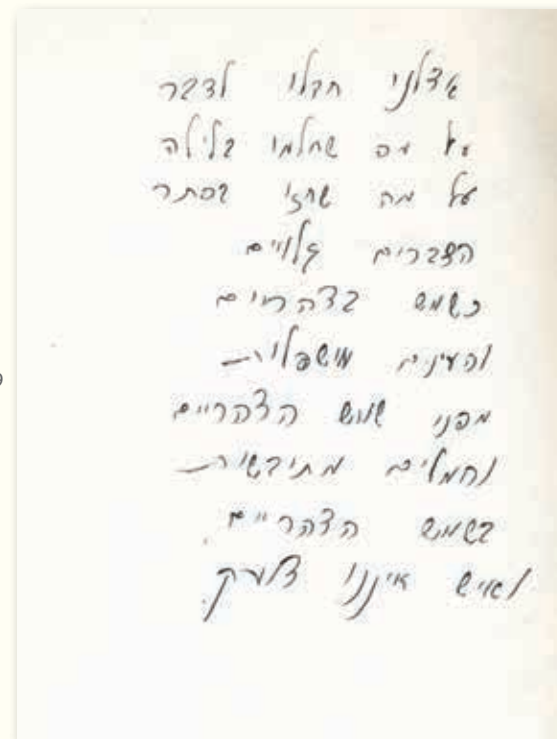 אצלנו חדלו לדבר
על מה שחלמו בלילה
על מה בסתר
הדברים גלויים
כשמש בצהריים
והעינים מושפלות
מפני שמש הצהריים
והמלים מתיבשות
בשמש הצהריים.
ואיש איננו צועק.